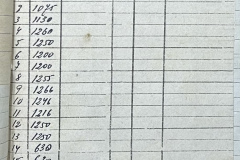 2 1075
3 1130
4 1260
5 1250
6 1200
7 1200
8 1255
9 1266
10 1246
11 1216
12 1250
13 1250
14 630